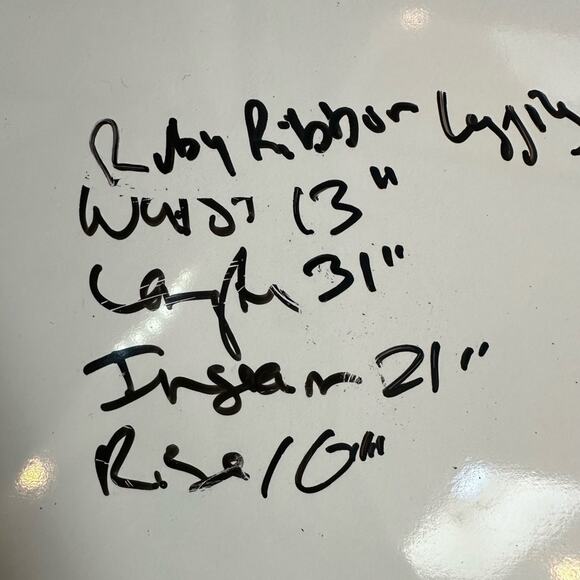 Ruby Ribbon Legging
Waist 13"
Length 31"
Inseam 21"
Rise 10"